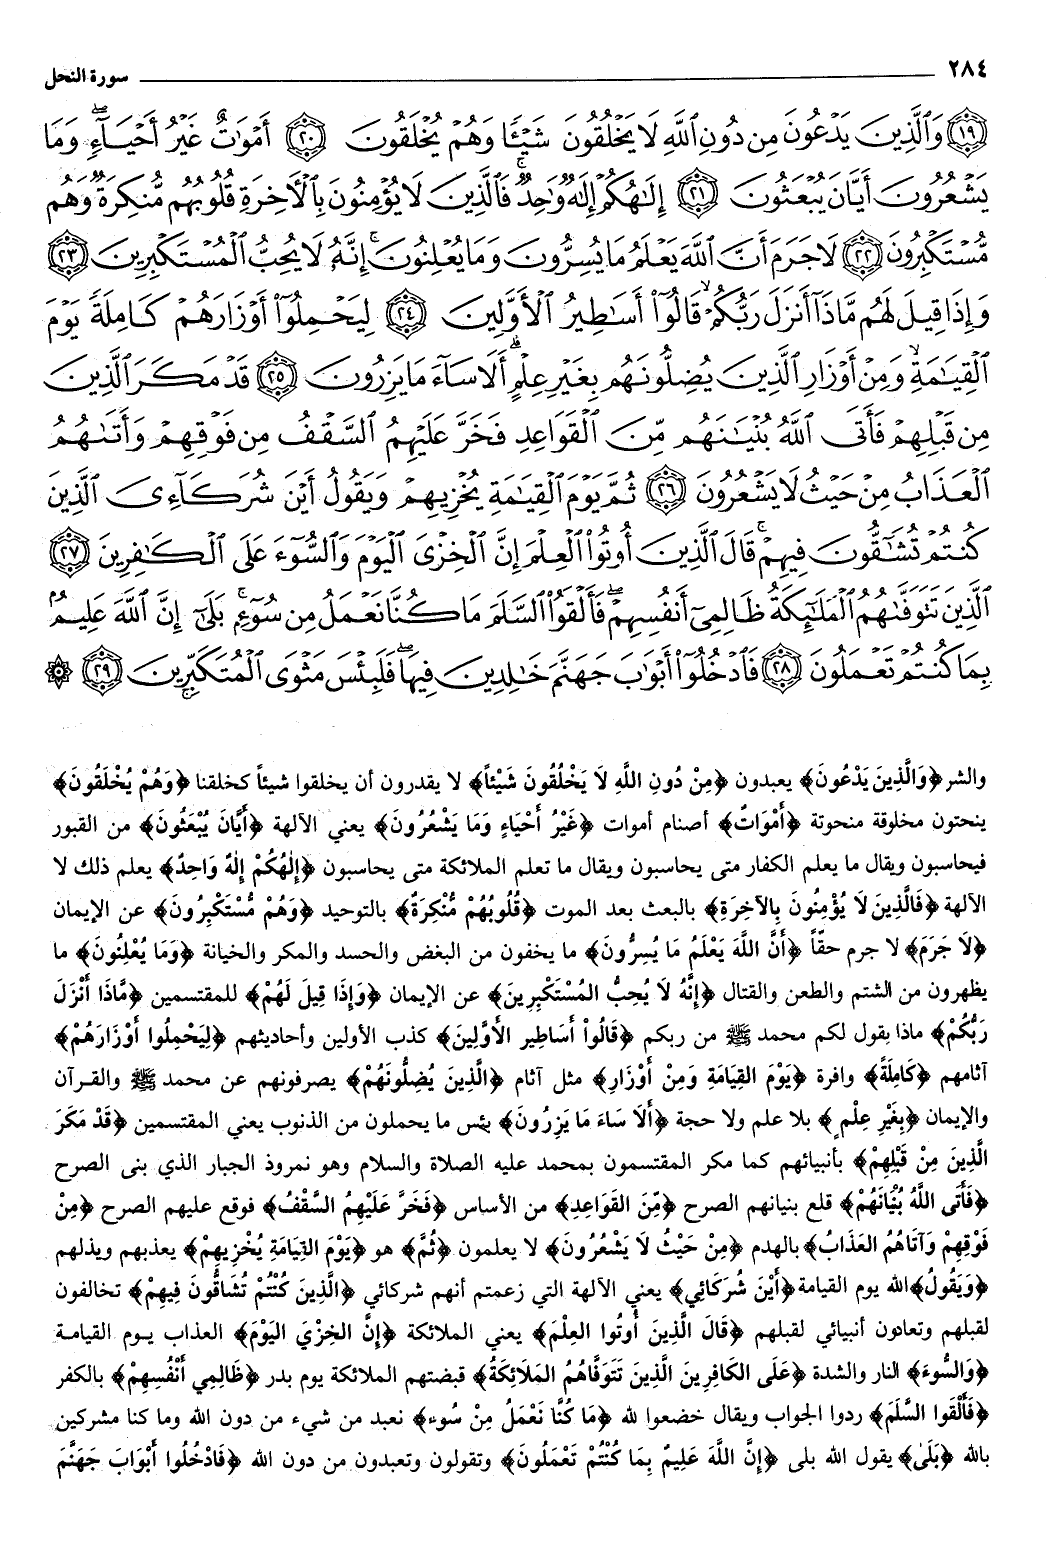 ٢٨٤ سورة النحل
﴿١٩﴾ وَٱلَّذِينَ يَدْعُونَ مِن دُونِ ٱللَّهِ لَا يَخْلُقُونَ شَيْـًٔا وَهُمْ يُخْلَقُونَ ﴿٢٠﴾ أَمْوَٰتٌ غَيْرُ أَحْيَآءٍۖ وَمَا
يَشْعُرُونَ أَيَّانَ يُبْعَثُونَ ﴿٢١﴾ إِلَٰهُكُمْ إِلَٰهٌ وَٰحِدٌۚ فَٱلَّذِينَ لَا يُؤْمِنُونَ بِٱلْأَخِرَةِ قُلُوبُهُم مُّنكِرَةٌ وَهُم
مُّسْتَكْبِرُونَ ﴿٢٢﴾ لَا جَرَمَ أَنَّ ٱللَّهَ يَعْلَمُ مَا يُسِرُّونَ وَمَا يُعْلِنُونَۚ إِنَّهُۥ لَا يُحِبُّ ٱلْمُسْتَكْبِرِينَ ﴿٢٣﴾
وَإِذَا قِيلَ لَهُم مَّاذَآ أَنزَلَ رَبُّكُمْۙ قَالُوٓا۟ أَسَٰطِيرُ ٱلْأَوَّلِينَ ﴿٢٤﴾ لِيَحْمِلُوٓا۟ أَوْزَارَهُمْ كَامِلَةً يَوْمَ
ٱلْقِيَٰمَةِۙ وَمِنْ أَوْزَارِ ٱلَّذِينَ يُضِلُّونَهُم بِغَيْرِ عِلْمٍۗ أَلَا سَآءَ مَا يَزِرُونَ ﴿٢٥﴾ قَدْ مَكَرَ ٱلَّذِينَ
مِن قَبْلِهِمْ فَأَتَى ٱللَّهُ بُنْيَٰنَهُم مِّنَ ٱلْقَوَاعِدِ فَخَرَّ عَلَيْهِمُ ٱلسَّقْفُ مِن فَوْقِهِمْ وَأَتَىٰهُمُ
ٱلْعَذَابُ مِنْ حَيْثُ لَا يَشْعُرُونَ ﴿٢٦﴾ ثُمَّ يَوْمَ ٱلْقِيَٰمَةِ يُخْزِيهِمْ وَيَقُولُ أَيْنَ شُرَكَآءِىَ ٱلَّذِينَ
كُنتُمْ تُشَٰٓقُّونَ فِيهِمْۚ قَالَ ٱلَّذِينَ أُوتُوا۟ ٱلْعِلْمَ إِنَّ ٱلْخِزْىَ ٱلْيَوْمَ وَٱلسُّوٓءَ عَلَى ٱلْكَٰفِرِينَ ﴿٢٧﴾
ٱلَّذِينَ تَتَوَفَّىٰهُمُ ٱلْمَلَٰٓئِكَةُ ظَالِمِىٓ أَنفُسِهِمْۖ فَأَلْقَوُا۟ ٱلسَّلَمَ مَا كُنَّا نَعْمَلُ مِن سُوٓءٍۚ بَلَىٰٓ إِنَّ ٱللَّهَ عَلِيمٌۢ
بِمَا كُنتُمْ تَعْمَلُونَ ﴿٢٨﴾ فَٱدْخُلُوٓا۟ أَبْوَٰبَ جَهَنَّمَ خَٰلِدِينَ فِيهَاۖ فَلَبِئْسَ مَثْوَى ٱلْمُتَكَبِّرِينَ ﴿٢٩﴾ ۞
والشر ﴿وَالَّذِينَ يَدْعُونَ﴾ يعبدون ﴿مِنْ دُونِ اللَّهِ لَا يَخْلُقُونَ شَيْئاً﴾ لا يقدرون أن يخلقوا شيئاً كخلقنا ﴿وَهُمْ يُخْلَقُونَ﴾
ينحتون مخلوقة منحوتة ﴿أَمْوَاتٌ﴾ أصنام أموات ﴿غَيْرُ أَحْيَاءٍ وَمَا يَشْعُرُونَ﴾ يعني الآلهة ﴿أَيَّانَ يُبْعَثُونَ﴾ من القبور
فيحاسبون ويقال ما يعلم الكفار متى يحاسبون ويقال ما تعلم الملائكة متى يحاسبون ﴿إِلٰهُكُمْ إِلٰهٌ وَاحِدٌ﴾ يعلم ذلك لا
الآلهة ﴿فَالَّذِينَ لَا يُؤْمِنُونَ بِالآخِرَةِ﴾ بالبعث بعد الموت ﴿قُلُوبُهُمْ مُنْكِرَةٌ﴾ بالتوحيد ﴿وَهُمْ مُسْتَكْبِرُونَ﴾ عن الإيمان
﴿لَا جَرَمَ﴾ لا جرم حقّاً ﴿أَنَّ اللَّهَ يَعْلَمُ مَا يُسِرُّونَ﴾ ما يخفون من البغض والحسد والمكر والخيانة ﴿وَمَا يُعْلِنُونَ﴾ ما
يظهرون من الشتم والطعن والقتال ﴿إِنَّهُ لَا يُحِبُّ المُسْتَكْبِرِينَ﴾ عن الإيمان ﴿وَإِذَا قِيلَ لَهُمْ﴾ للمقتسمين ﴿مَّاذَا أَنْزَلَ
رَبُّكُمْ﴾ ماذا يقول لكم محمد ﷺ من ربكم ﴿قَالُواْ أَسَاطِير الأَوَّلِينَ﴾ كذب الأولين وأحاديثهم ﴿لِيَحْمِلُوا أَوْزَارَهُمْ﴾
آثامهم ﴿كَامِلَةً﴾ وافرة ﴿يَوْمَ القِيَامَةِ وَمِنْ أَوْزَارِ﴾ مثل آثام ﴿الَّذِينَ يُضِلُّونَهُمْ﴾ يصرفونهم عن محمد ﷺ والقرآن
والإيمان ﴿بِغَيْرِ عِلْمٍ﴾ بلا علم ولا حجة ﴿أَلَا سَاءَ مَا يَزِرُونَ﴾ بئس ما يحملون من الذنوب يعني المقتسمين ﴿قَدْ مَكَرَ
الَّذِينَ مِنْ قَبْلِهِمْ﴾ بأنبيائهم كما مكر المقتسمون بمحمد عليه الصلاة والسلام وهو نمروذ الجبار الذي بنى الصرح
﴿فَأَتَى اللَّهُ بُنْيَانَهُمْ﴾ قلع بنيانهم الصرح ﴿مِّنَ القَوَاعِدِ﴾ من الأساس ﴿فَخَرَّ عَلَيْهِمُ السَّقْفُ﴾ فوقع عليهم الصرح ﴿مِنْ
فَوْقِهِمْ وَآتَاهُمُ العَذَابُ﴾ بالهدم ﴿مِنْ حَيْثُ لَا يَشْعُرُونَ﴾ لا يعلمون ﴿ثُمَّ﴾ هو ﴿يَوْمَ القِيَامَةِ يُخْزِيهِمْ﴾ يعذبهم ويذلهم
﴿وَيَقُولُ﴾ الله يوم القيامة ﴿أَيْنَ شُرَكَائِي﴾ يعني الآلهة التي زعمتم أنهم شركائي ﴿الَّذِينَ كُنْتُمْ تُشَاقُّونَ فِيهِمْ﴾ تخالفون
لقبلهم وتعادون أنبيائي لقبلهم ﴿قَالَ الَّذِينَ أُوتُوا العِلْمَ﴾ يعني الملائكة ﴿إِنَّ الخِزْيَ اليَوْمَ﴾ العذاب يوم القيامة
﴿وَالسُّوءَ﴾ النار والشدة ﴿عَلَى الكَافِرِينَ الَّذِينَ تَتَوَفَّاهُمُ المَلَائِكَةُ﴾ قبضتهم الملائكة يوم بدر ﴿ظَالِمِي أَنْفُسِهِمْ﴾ بالكفر
﴿فَأَلْقَوا السَّلَمَ﴾ ردوا الجواب ويقال خضعوا لله ﴿مَا كُنَّا نَعْمَلُ مِنْ سُوءٍ﴾ نعبد من شيء من دون الله وما كنا مشركين
بالله ﴿بَلَىٰ﴾ يقول الله بلى ﴿إِنَّ اللَّهَ عَلِيمٌ بِمَا كُنْتُمْ تَعْمَلُونَ﴾ وتقولون وتعبدون من دون الله ﴿فَادْخُلُوا أَبْوَابَ جَهَنَّمَ